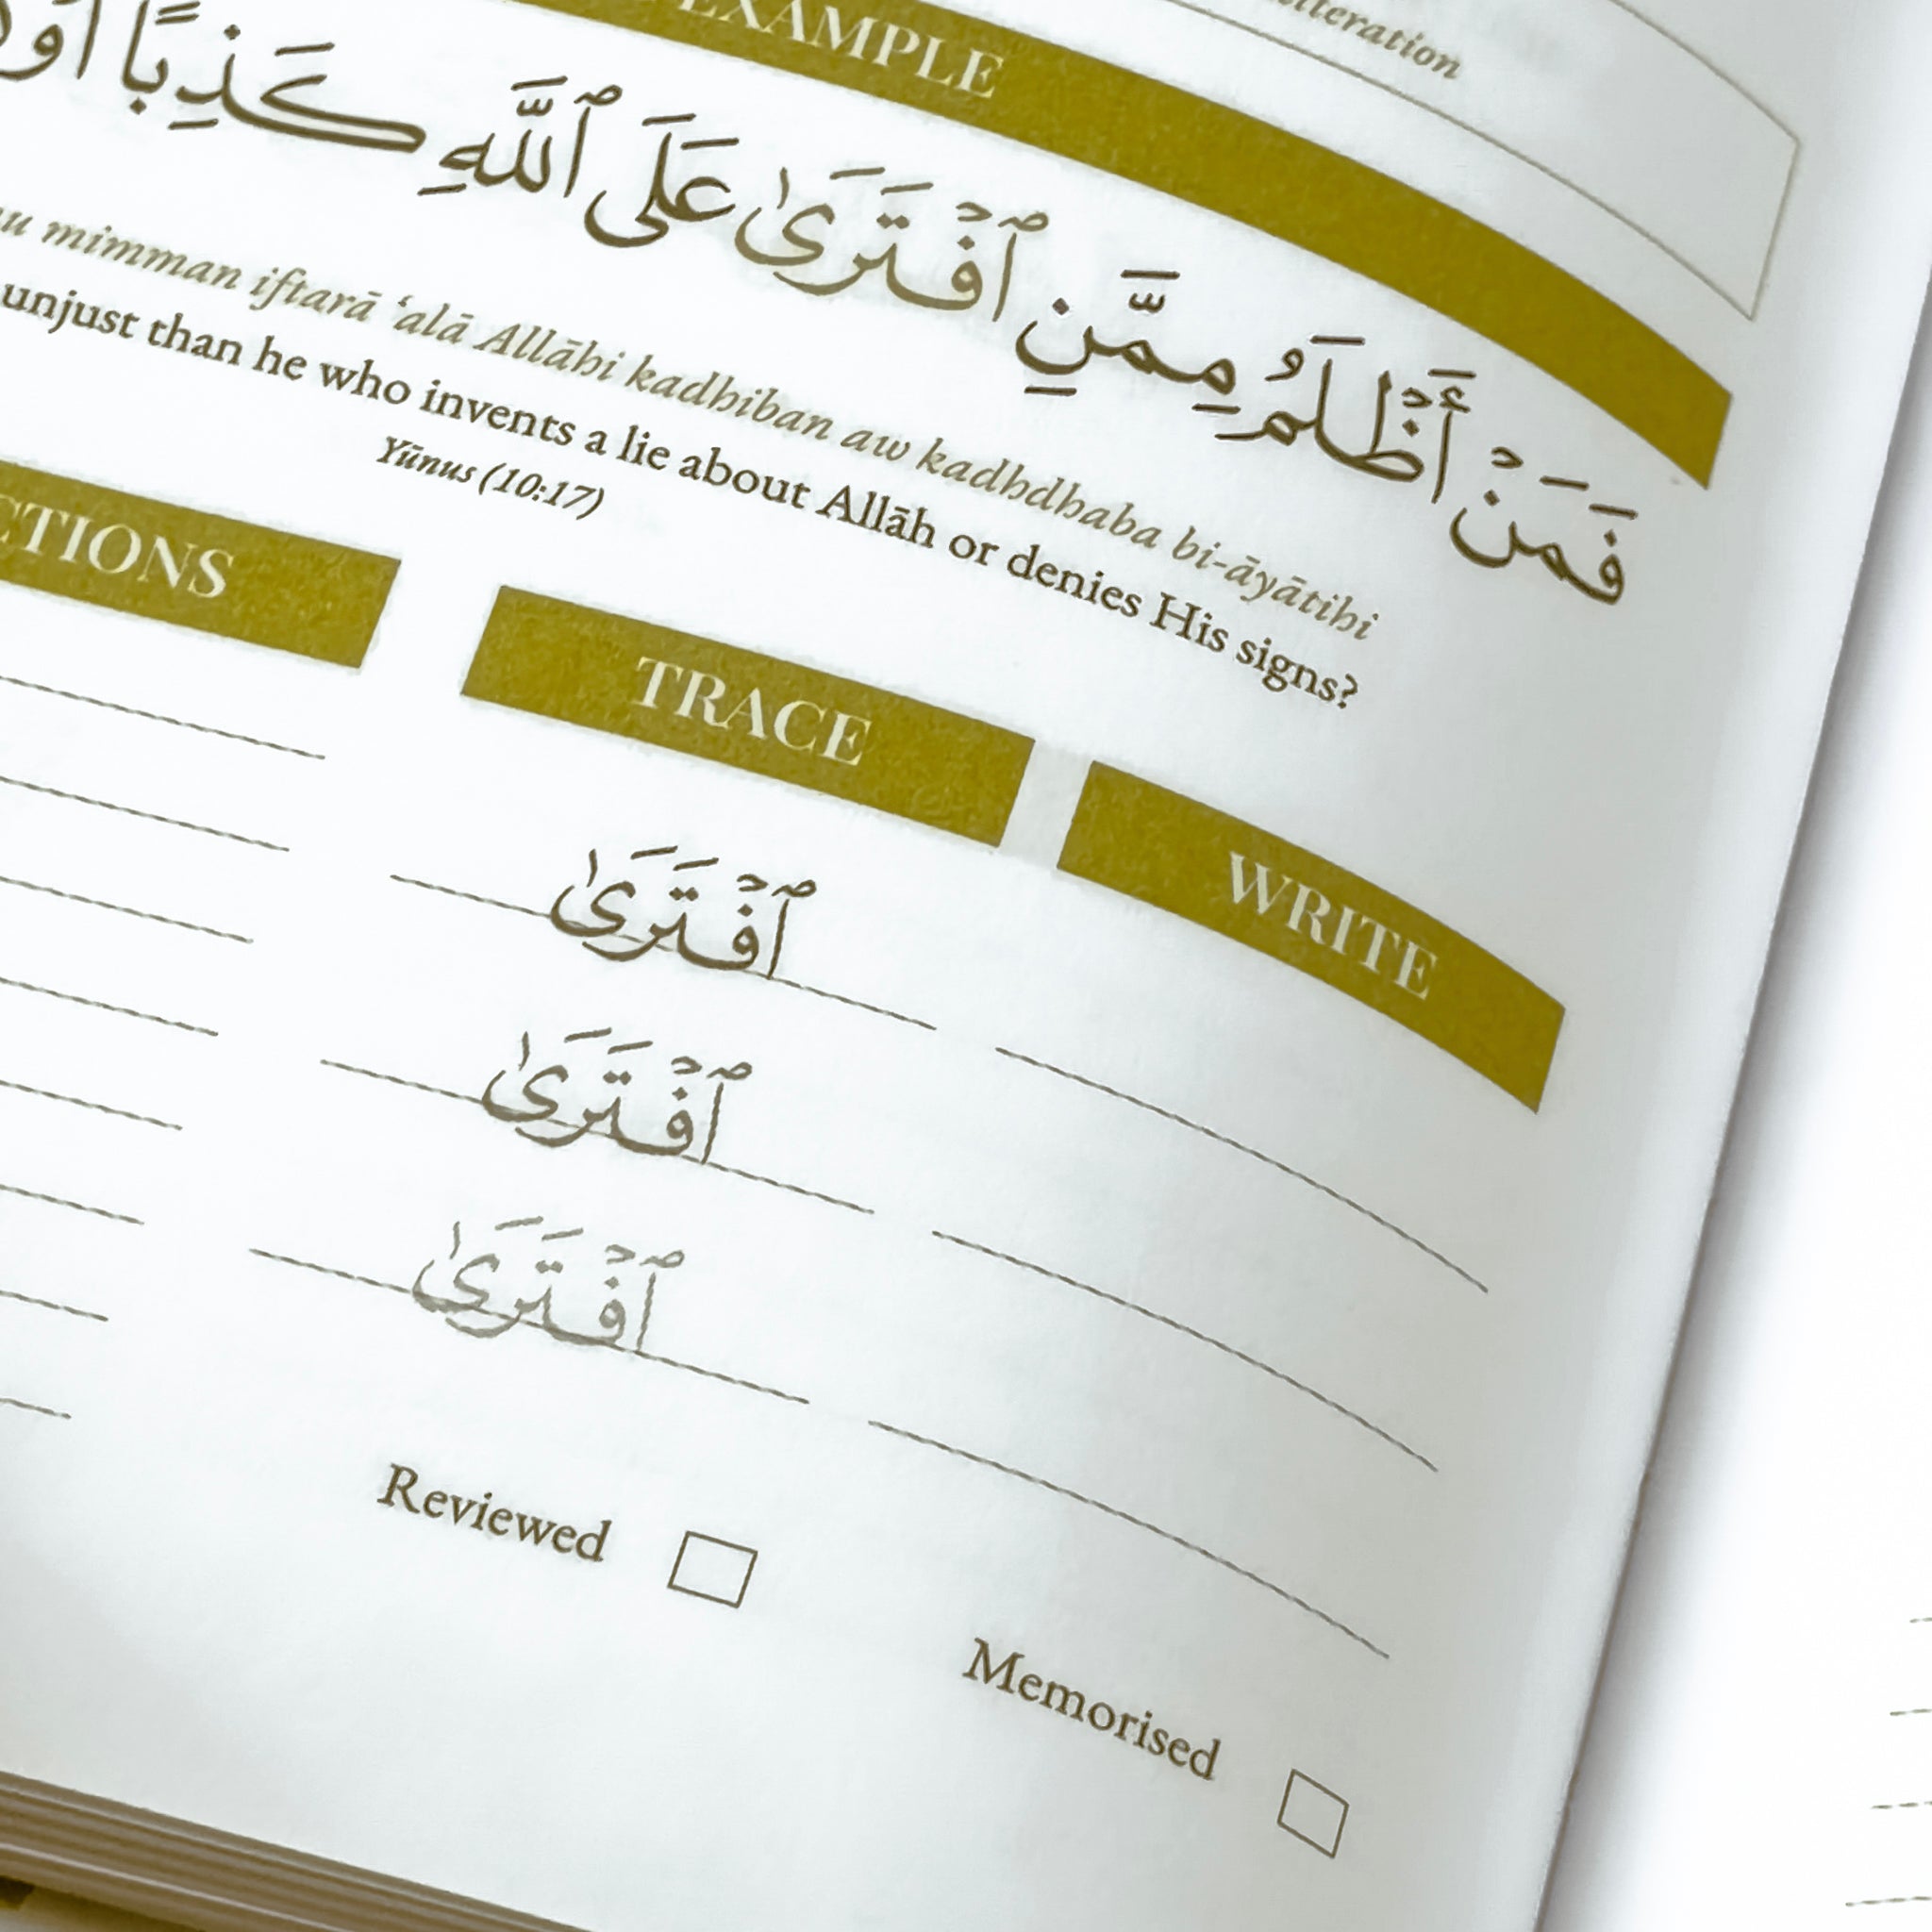 EXAMPLE
فَمَنْ أَظْلَمُ مِمَّنِ ٱفْتَرَىٰ عَلَى ٱللَّهِ كَذِبًا
mimman iftarā ‘alā Allāhi kadhiban aw kadhdhaba bi-āyātihi
unjust than he who invents a lie about Allāh or denies His signs?
Yūnus (10:17)
TRACE
WRITE
ٱفْتَرَىٰ
ٱفْتَرَىٰ
ٱفْتَرَىٰ
Reviewed
Memorised